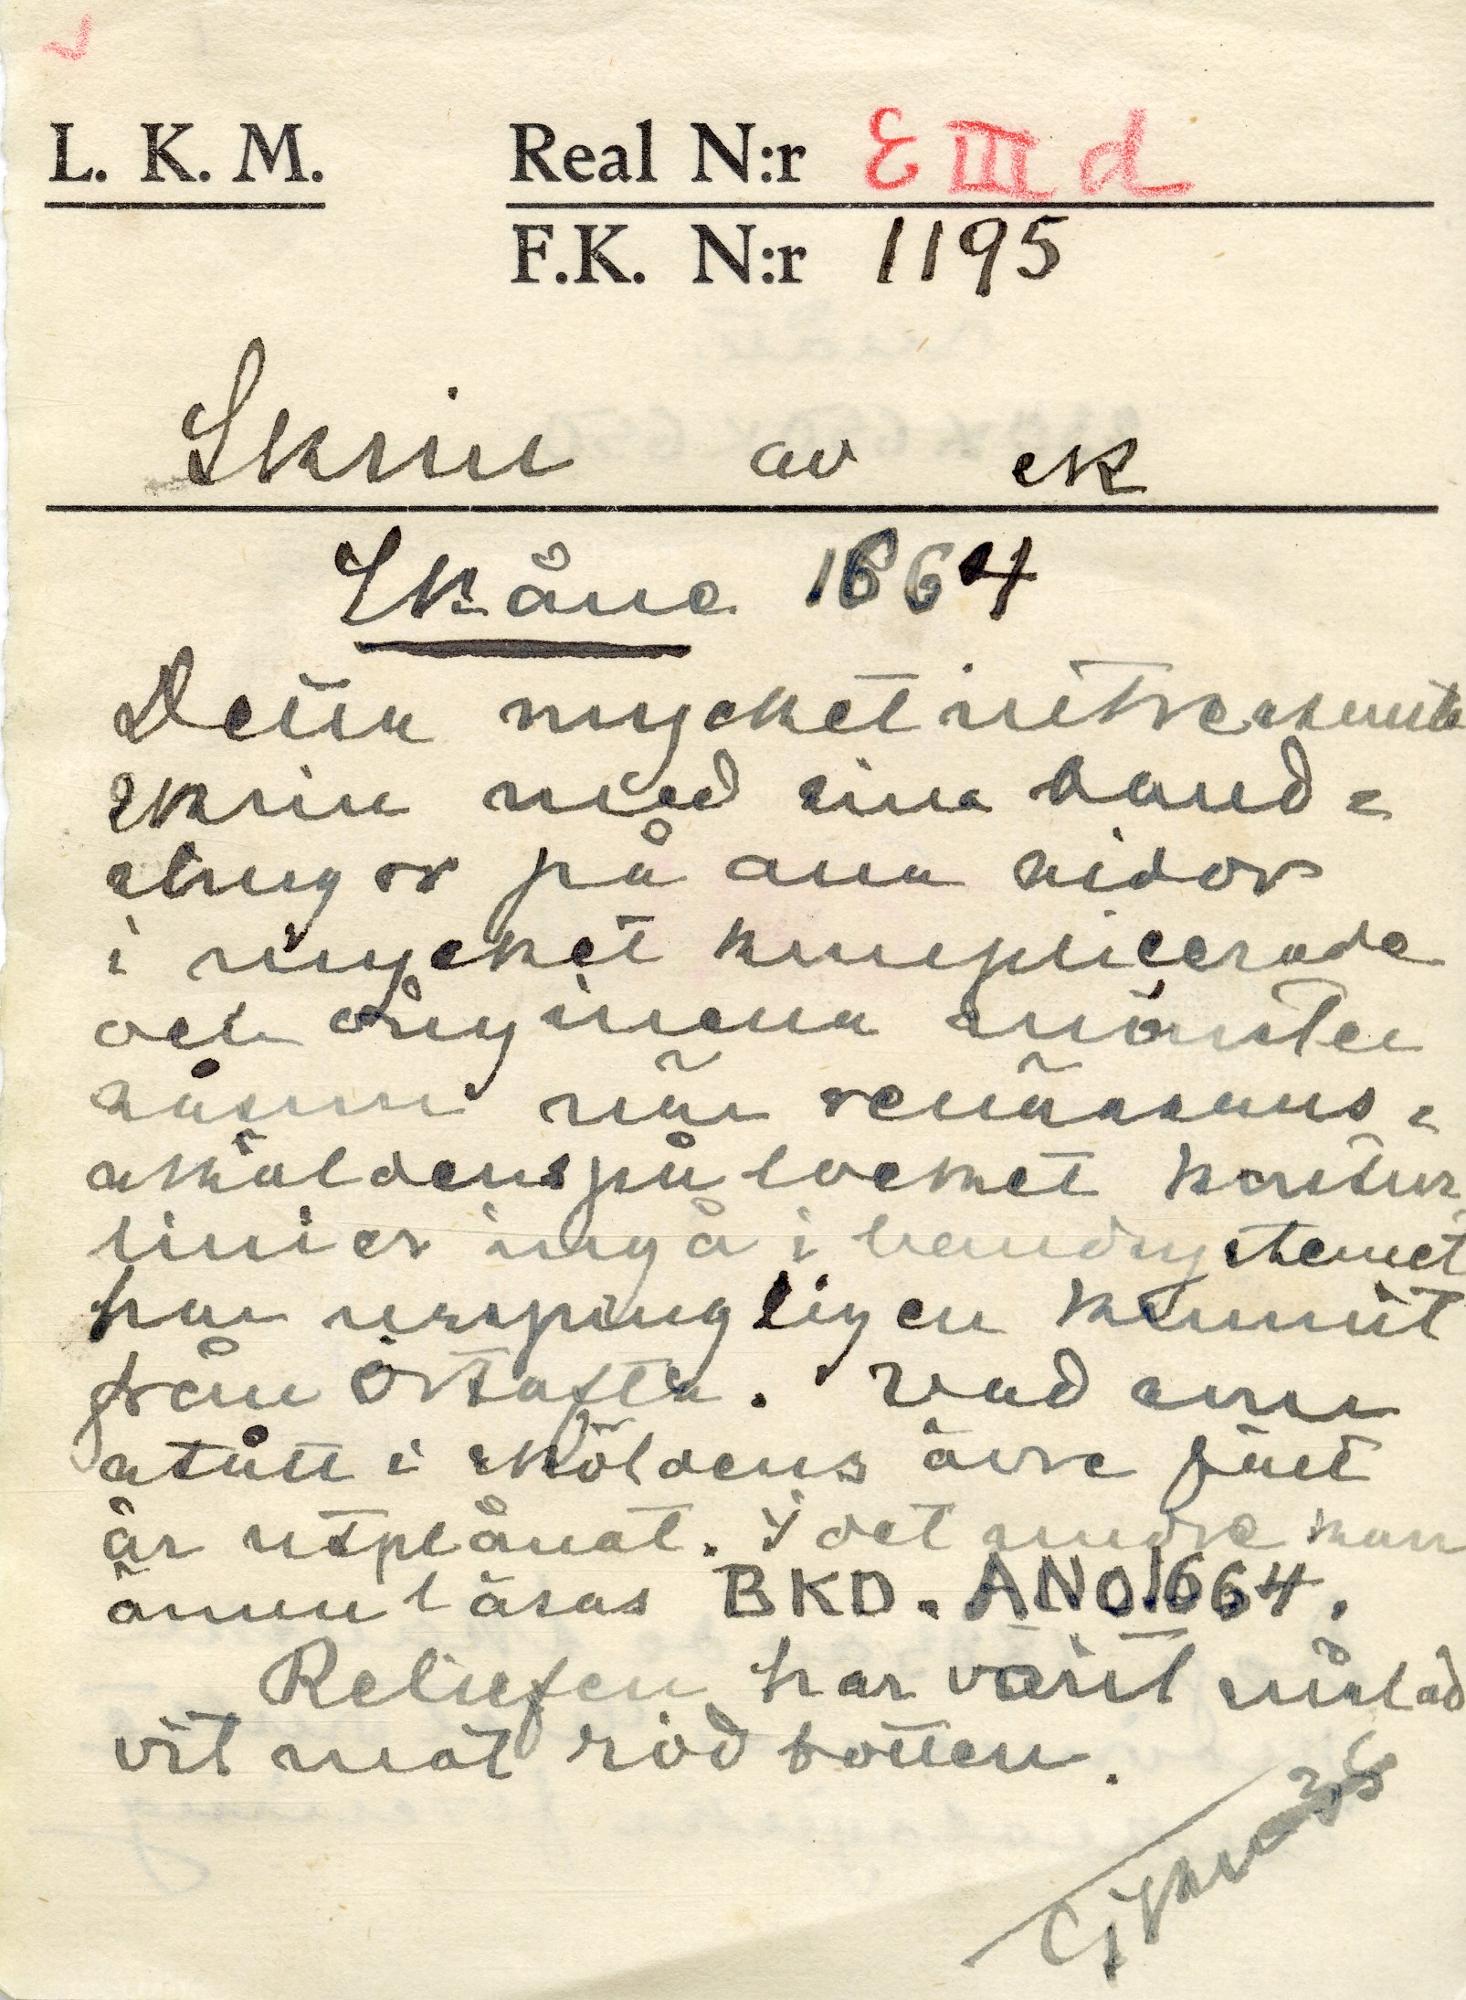 L. K. M. Real N:r E III d
F.K. N:r 1195
Skrin av ek
Skåne 1664
Detta mycket intressanta
skrin med sina band-
slingor på alla sidor
i mycket komplicerade
och originella mönster
såsom när renässans-
sköldens på locket kontur
linier ingå i bandsystemet
har urspringligen kommit
från Örtofta. Vad som
stått i sköldens övre fält
är utplånat. I det andra kan
ännu läsas BKD. ANO1664.
Reliefen har varit målad
vit mot röd botten.